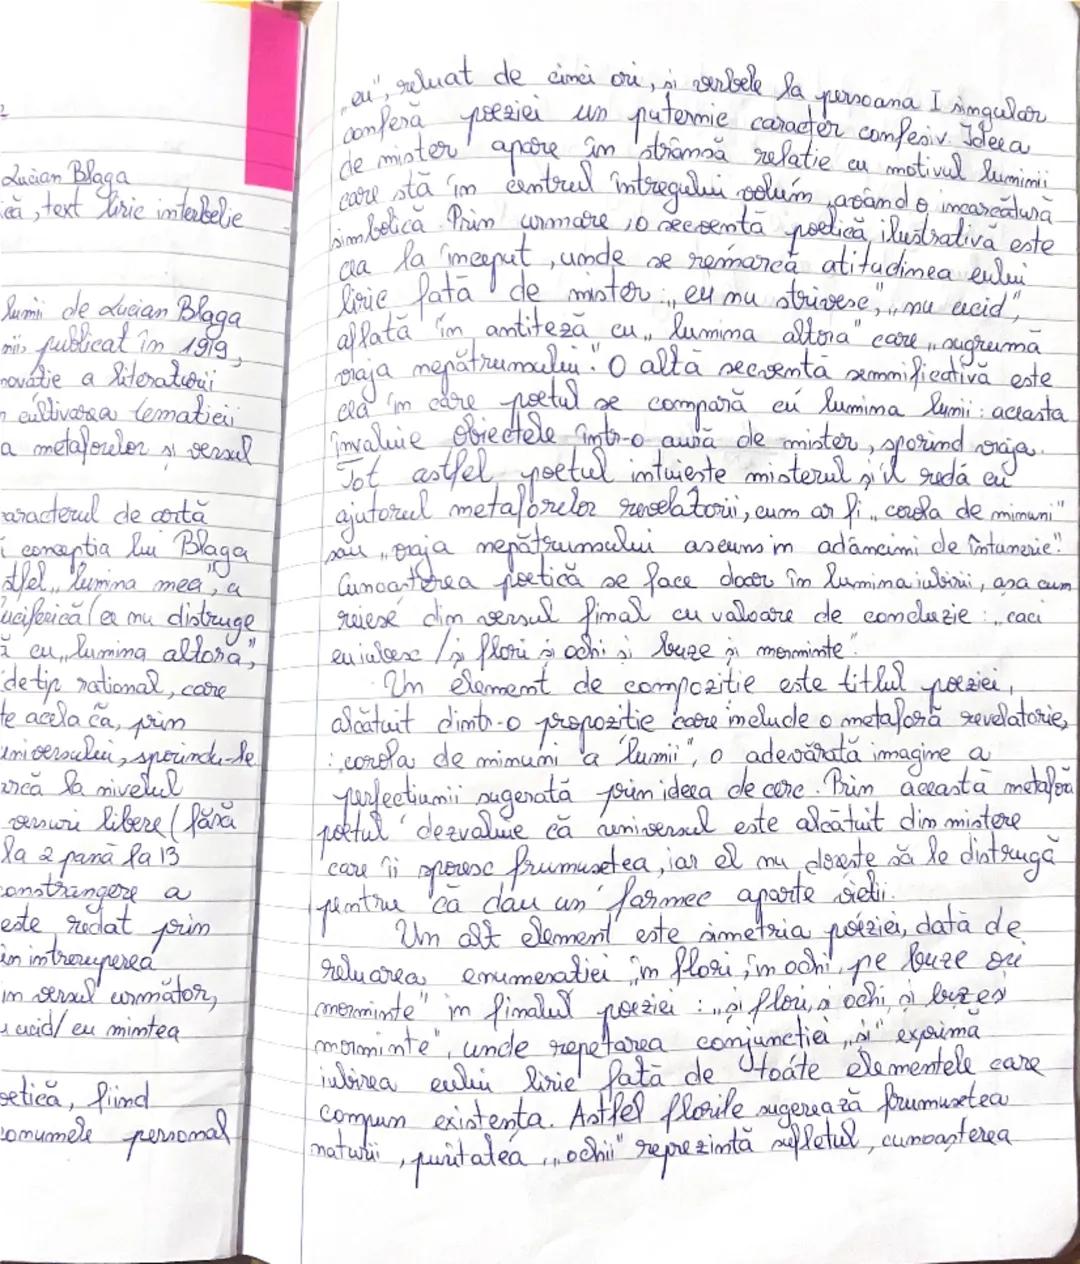 2
Lucian Blaga
că, text liric interbelic
lumii de Lucian Blaga
publicat în 1919,
novație a literaturii
cultivarea tematicii
a metaforelor și versul
caracterul de artă
concepția lui Blaga
stfel „lumina mea", a
luciferică (ce nu distruge
cu „lumina altora",
de tip rațional, care
te acela că, prin
universului, sporindu-le
arcă la nivelul
versuri libere (fără
la 2 până la 13
constrângere a
este redat prin
in intreruperea
in versul următor,
ucid/ cu mintea
oetică, fiind
onumele personal
„eu", reluat de cinci ori, și verbele la persoana I singular
conferă poeziei un puternic caracter confesiv. Ideea
de mister apare în strânsă relație cu motivul luminii
care stă în centrul întregului volum, având o incarcătură
simbolică. Prin urmare, o secvență poetică ilustrativă este
cea la început, unde se remarcă atitudinea eului
liric față de mister: „eu nu strivesc", „nu ucid",
aflată în antiteză cu „lumina altora" care „sugrumă
vraja nepătrunsului". O altă secvență semnificativă este
cea în care poetul se compară cu lumina lunii: aceasta
învaluie obiectele într-o aură de mister, sporind vraja.
Tot astfel poetul intuiește misterul și îl redă cu
ajutorul metaforelor revelatorii, cum ar fi „corola de minuni"
sau „vraja nepătrunsului ascuns in adâncimi de întuneric".
Cunoașterea poetică se face doar în lumina iubirii, asa cum
reiese din versul final cu valoare de concluzie: „caci
eu iubesc / și flori și ochi și buze și morminte".
Un element de compoziție este titlul poeziei,
alcătuit dintr-o propoziție care include o metaforă revelatorie,
: „corola de minuni a lumii", o adevărată imagine a
perfecțiunii sugerată prin ideea de cerc. Prin această metaforă
poetul dezvaluie că universul este alcătuit din mistere
care îi sporesc frumusețea, iar el nu dorește să le distrugă
pentru că dau un farmec aparte vieții.
Un alt element este simetria poeziei, dată de
reluarea enumerației „în flori, în ochi, pe buze ori
morminte" in finalul poeziei: „și flori, și ochi, și buze și
morminte", unde repetarea conjuncției „și" exprimă
iubirea eului liric față de toate elementele care
compun existența. Astfel florile sugerează frumusețea
naturii, puritatea, „ochii" reprezintă sufletul, cunoașterea